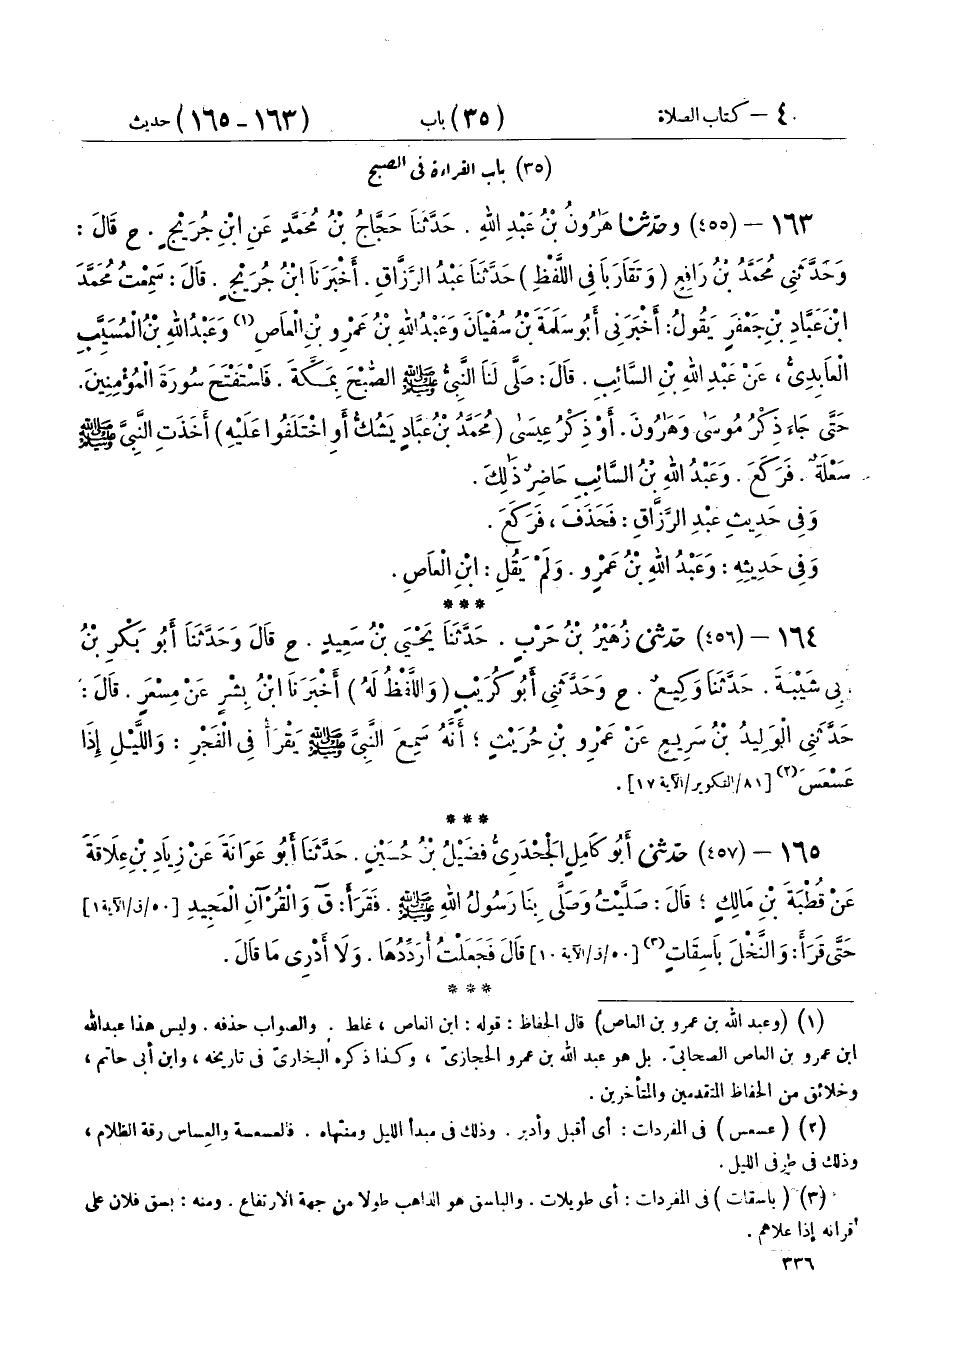 ٤٠ – كتاب الصلاة (٣٥) باب (١٦٣ - ١٦٥) حديث
(٣٥) باب القراءة فى الصبح
١٦٣ – (٤٥٥) وحَدَّثَنَا هَٰرُونُ بْنُ عَبْدِ اللهِ . حَدَّثَنَا حَجَّاجُ بْنُ مُحَمَّدٍ عَنِ ابْنِ جُرَيْجٍ . ح قَالَ :
وَحَدَّثَنِى مُحَمَّدُ بْنُ رَافِعٍ ( وَتَقَارَبَا فِى اللَّفْظِ ) حَدَّثَنَا عَبْدُ الرَّزَّاقِ . أَخْبَرَنَا ابْنُ جُرَيْجٍ . قَالَ : سَمِعْتُ مُحَمَّدَ
ابْنَ عَبَّادِ بْنِ جَعْفَرٍ يَقُولُ : أَخْبَرَنِى أَبُو سَلَمَةَ بْنُ سُفْيَانَ وَعَبْدُ اللهِ بْنُ عَمْرِو بْنِ الْعَاصِ(١) وَعَبْدُ اللهِ بْنُ الْمُسَيَّبِ
الْعَابِدِىُّ ، عَنْ عَبْدِ اللهِ بْنِ السَّائِبِ . قَالَ : صَلَّى لَنَا النَّبِىُّ ﷺ الصُّبْحَ بِمَكَّةَ . فَاسْتَفْتَحَ سُورَةَ الْمُؤْمِنِينَ.
حَتَّى جَاءَ ذِكْرُ مُوسَىٰ وَهَٰرُونَ . أَوْ ذِكْرُ عِيسَىٰ ( مُحَمَّدُ بْنُ عَبَّادٍ يَشُكُّ أَوِ اخْتَلَفُوا عَلَيْهِ ) أَخَذَتِ النَّبِىَّ ﷺ
سَعْلَةٌ . فَرَكَعَ . وَعَبْدُ اللهِ بْنُ السَّائِبِ حَاضِرٌ ذَٰلِكَ .
وَفِى حَدِيثِ عَبْدِ الرَّزَّاقِ : فَحَذَفَ ، فَرَكَعَ .
وَفِى حَدِيثِهِ : وَعَبْدُ اللهِ بْنُ عَمْرٍو . وَلَمْ يَقُلْ : ابْنِ الْعَاصِ .
***
١٦٤ – (٤٥٦) حَدَّثَنِى زُهَيْرُ بْنُ حَرْبٍ . حَدَّثَنَا يَحْيَىٰ بْنُ سَعِيدٍ . ح قَالَ وَحَدَّثَنَا أَبُو بَكْرِ بْنُ
بِى شَيْبَةَ . حَدَّثَنَا وَكِيعٌ . ح وَحَدَّثَنِى أَبُو كُرَيْبٍ ( وَاللَّفْظُ لَهُ ) أَخْبَرَنَا ابْنُ بِشْرٍ عَنْ مِسْعَرٍ . قَالَ :
حَدَّثَنِى الْوَلِيدُ بْنُ سَرِيعٍ عَنْ عَمْرِو بْنِ حُرَيْثٍ ؛ أَنَّهُ سَمِعَ النَّبِىَّ ﷺ يَقْرَأُ فِى الْفَجْرِ : وَاللَّيْلِ إِذَا
عَسْعَسَ(٢) [٨١/التكوير/الآية ١٧] .
***
١٦٥ – (٤٥٧) حَدَّثَنِى أَبُو كَامِلٍ الْجَحْدَرِىُّ فُضَيْلُ بْنُ حُسَيْنٍ . حَدَّثَنَا أَبُو عَوَانَةَ عَنْ زِيَادِ بْنِ عِلَاقَةَ
عَنْ قُطْبَةَ بْنِ مَالِكٍ ؛ قَالَ : صَلَّيْتُ وَصَلَّى بِنَا رَسُولُ اللهِ ﷺ . فَقَرَأَ : قٓ وَالْقُرْآنِ الْمَجِيدِ [٥٠/ق/الآية١]
حَتَّى قَرَأَ : وَالنَّخْلَ بَاسِقَاتٍ(٣) [٥٠/ق/الآية ١٠] قَالَ فَجَعَلْتُ أُرَدِّدُهَا . وَلَا أَدْرِى مَا قَالَ .
***
(١) (وعبد الله بن عمرو بن العاص) قال الحفاظ : قوله : ابن العاص ، غلط . والصواب حذفه . وليس هذا عبدالله
ابن عمرو بن العاص الصحابىّ. بل هو عبد الله بن عمرو الحجازىّ ، وكذا ذكره البخارىّ فى تاريخه ، وابن أبى حاتم ،
وخلائق من الحفاظ المتقدمين والمتأخرين .
(٢) ( عسعس ) فى المفردات : أى أقبل وأدبر . وذلك فى مبدأ الليل ومنتهاه . فالعسعسة والعساس رقة الظلام ،
وذلك فى طرفى الليل .
(٣) ( باسقات ) فى المفردات : أى طويلات . والباسق هو الذاهب طولا من جهة الارتفاع . ومنه : بسق فلان على
أقرانه إذا علاهم .
٣٣٦